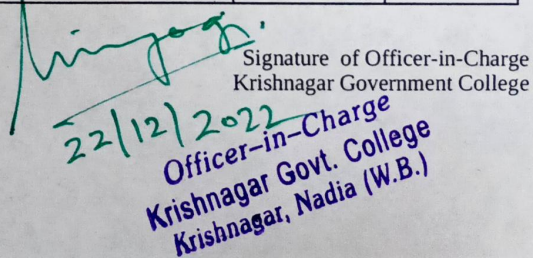 Signature of Officer-in-Charge
Krishnagar Government College
22/12/2022
Officer-in-Charge
Krishnagar Govt. College
Krishnagar, Nadia (W.B.)